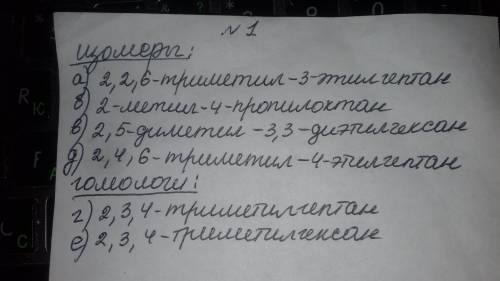 №1
изомеры:
а) 2,2,6-триметил-3-этилгептан
в) 2-метил-4-пропилоктан
в) 2,5-диметил-3,3-диэтилгексан
д) 2,4,6-триметил-4-этилгептан
гомологи:
г) 2,3,4-триметилгептан
е) 2,3,4-триметилгексан
R
Ю
F
А
C
С